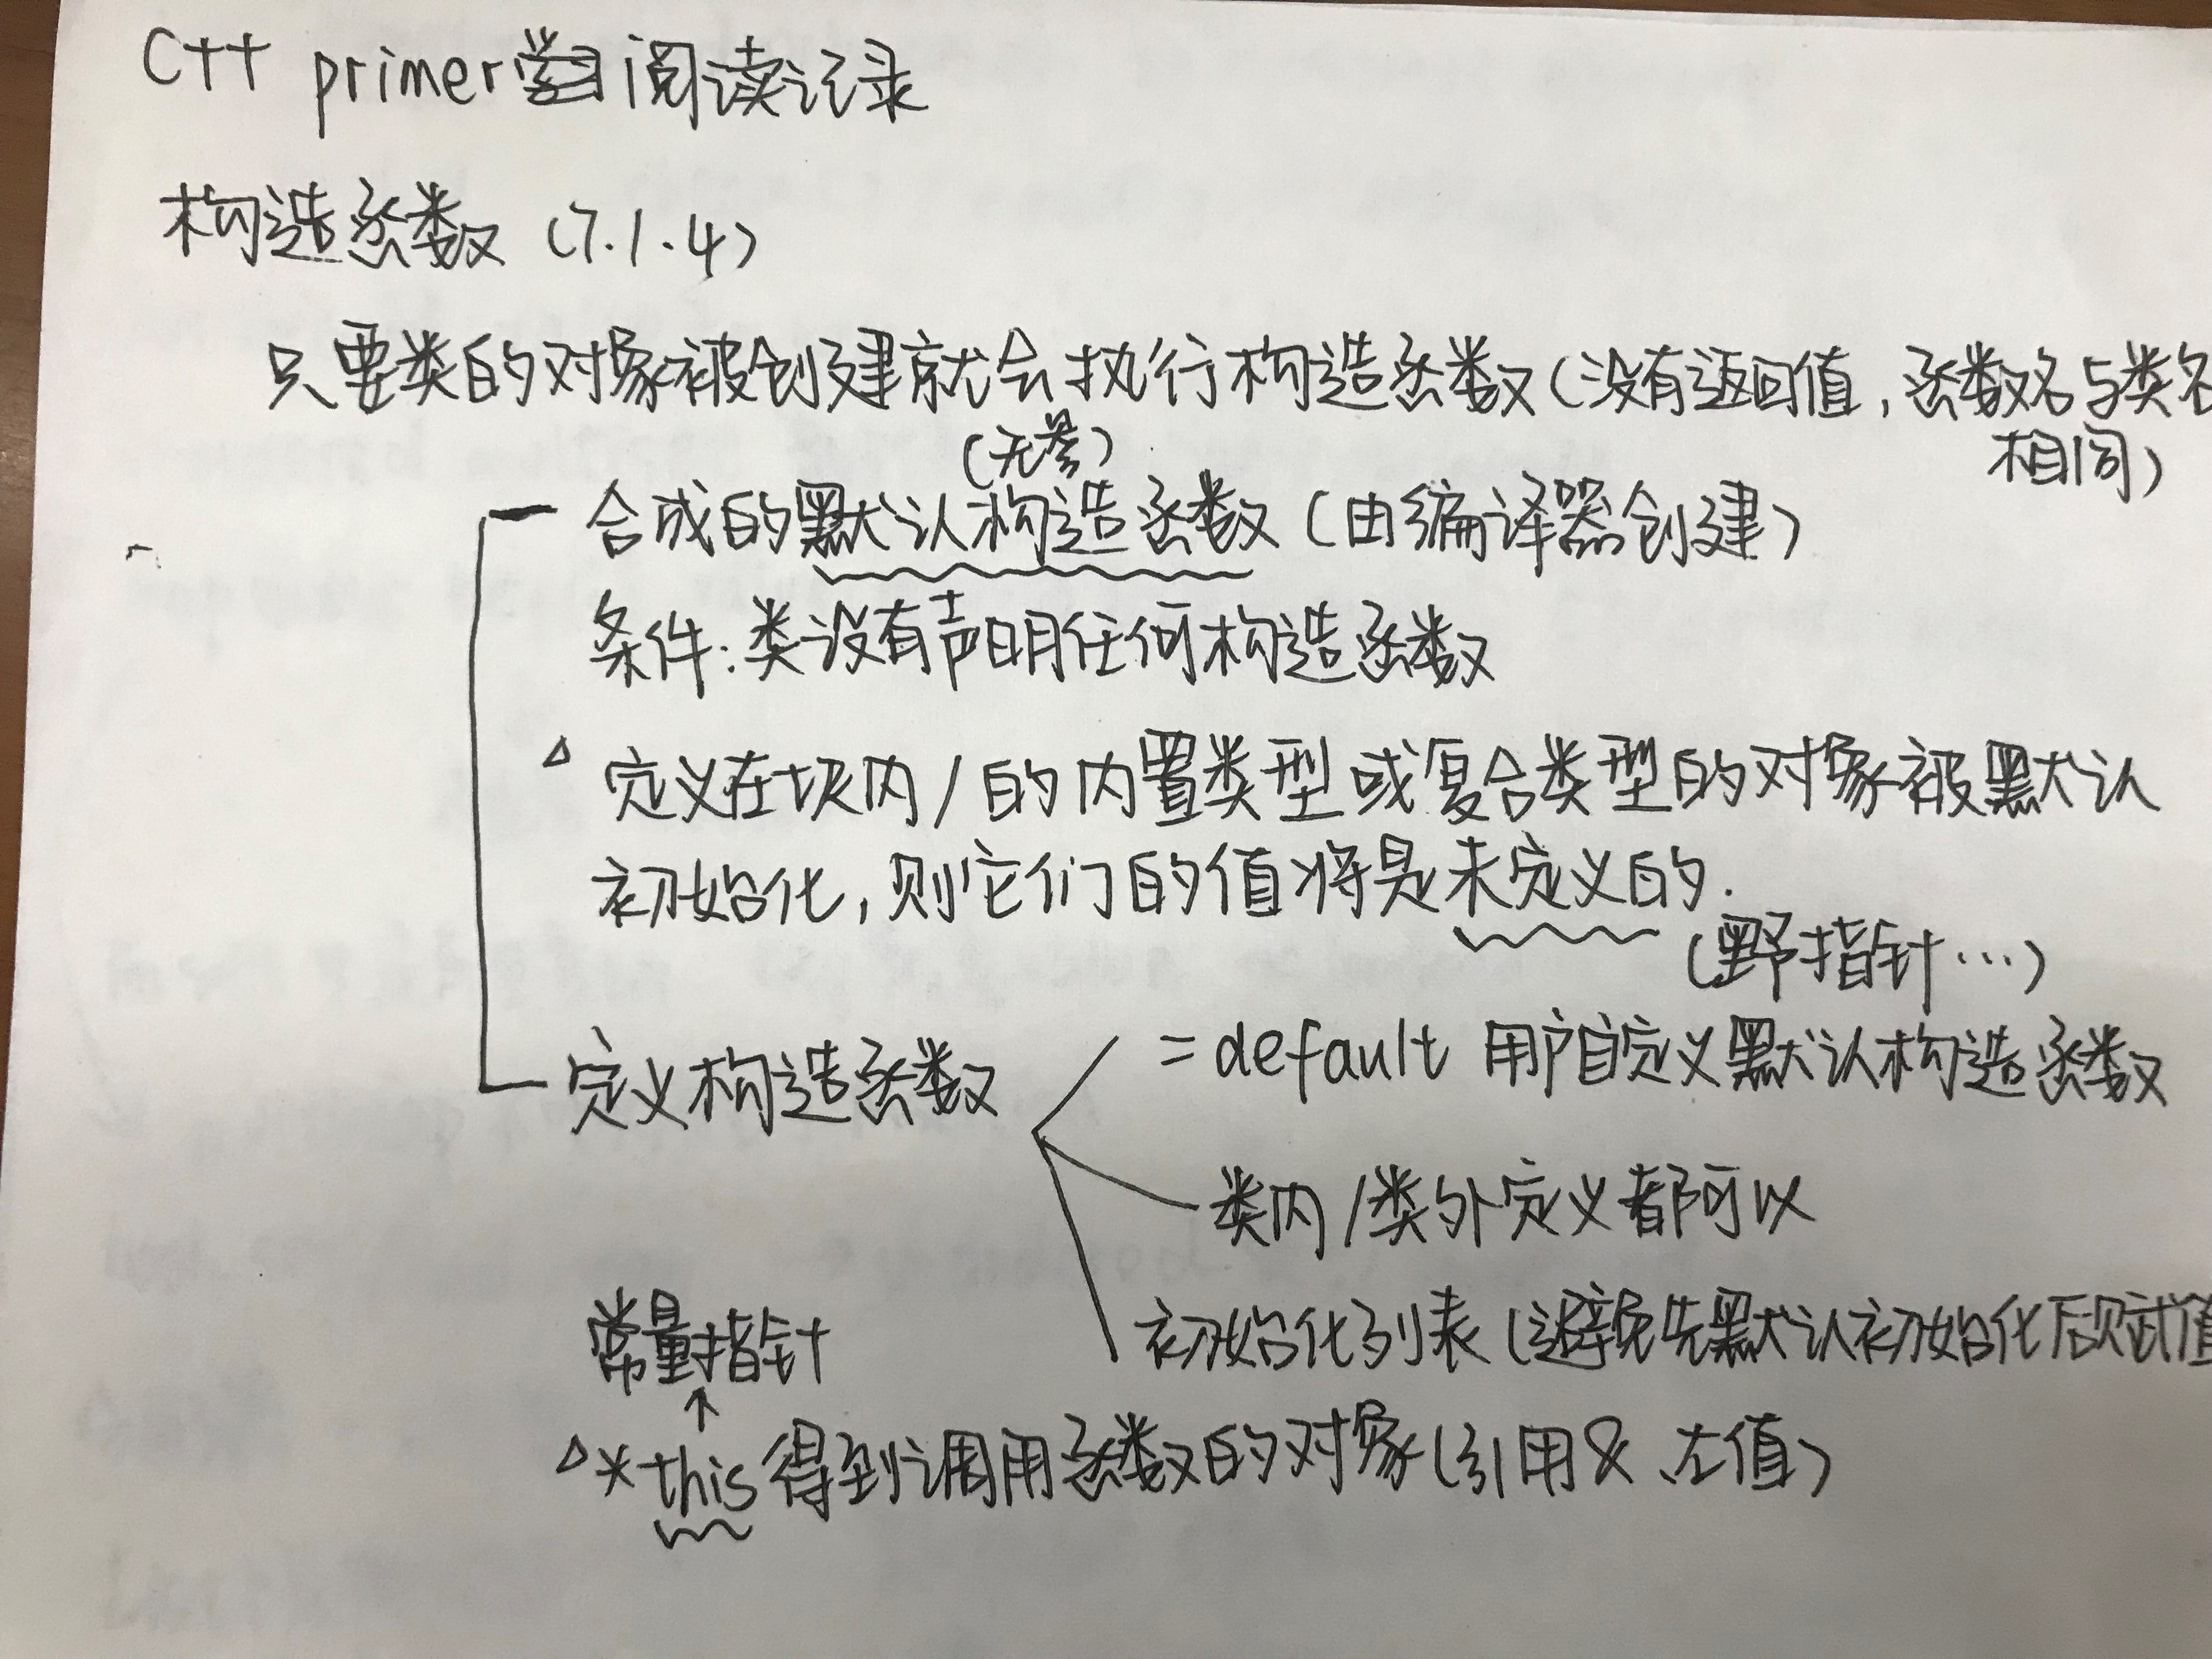 C++ primer 阅读记录
构造函数 (7.1.4)
只要类的对象被创建就会执行构造函数(没有返回值,函数名与类名
相同)
(无参)
合成的默认构造函数 (由编译器创建)
条件:类没有声明任何构造函数
△ 定义在块内/的内置类型或复合类型的对象被默认
初始化,则它们的值将是未定义的.
(野指针…)
定义构造函数
=default 用户自定义默认构造函数
类内/类外定义都可以
初始化列表(避免先默认初始化后赋值
常量指针
↑
△*this得到调用函数的对象(引用&、左值)